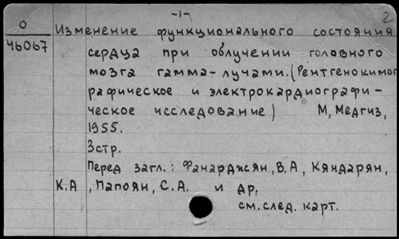 -1-
2
О
46067
Изменение функционального состояния
сердца при облучении головного
мозга гамма-лучами. (Рентгенокимог
рафическое и электрокардиографи-
ческое исследование) М, Медгиз,
1955.
3стр.
Перед загл.: Фанарджян, В.А, Кяндарян,
К.А , Папоян, С.А. и др,
см.след. карт.